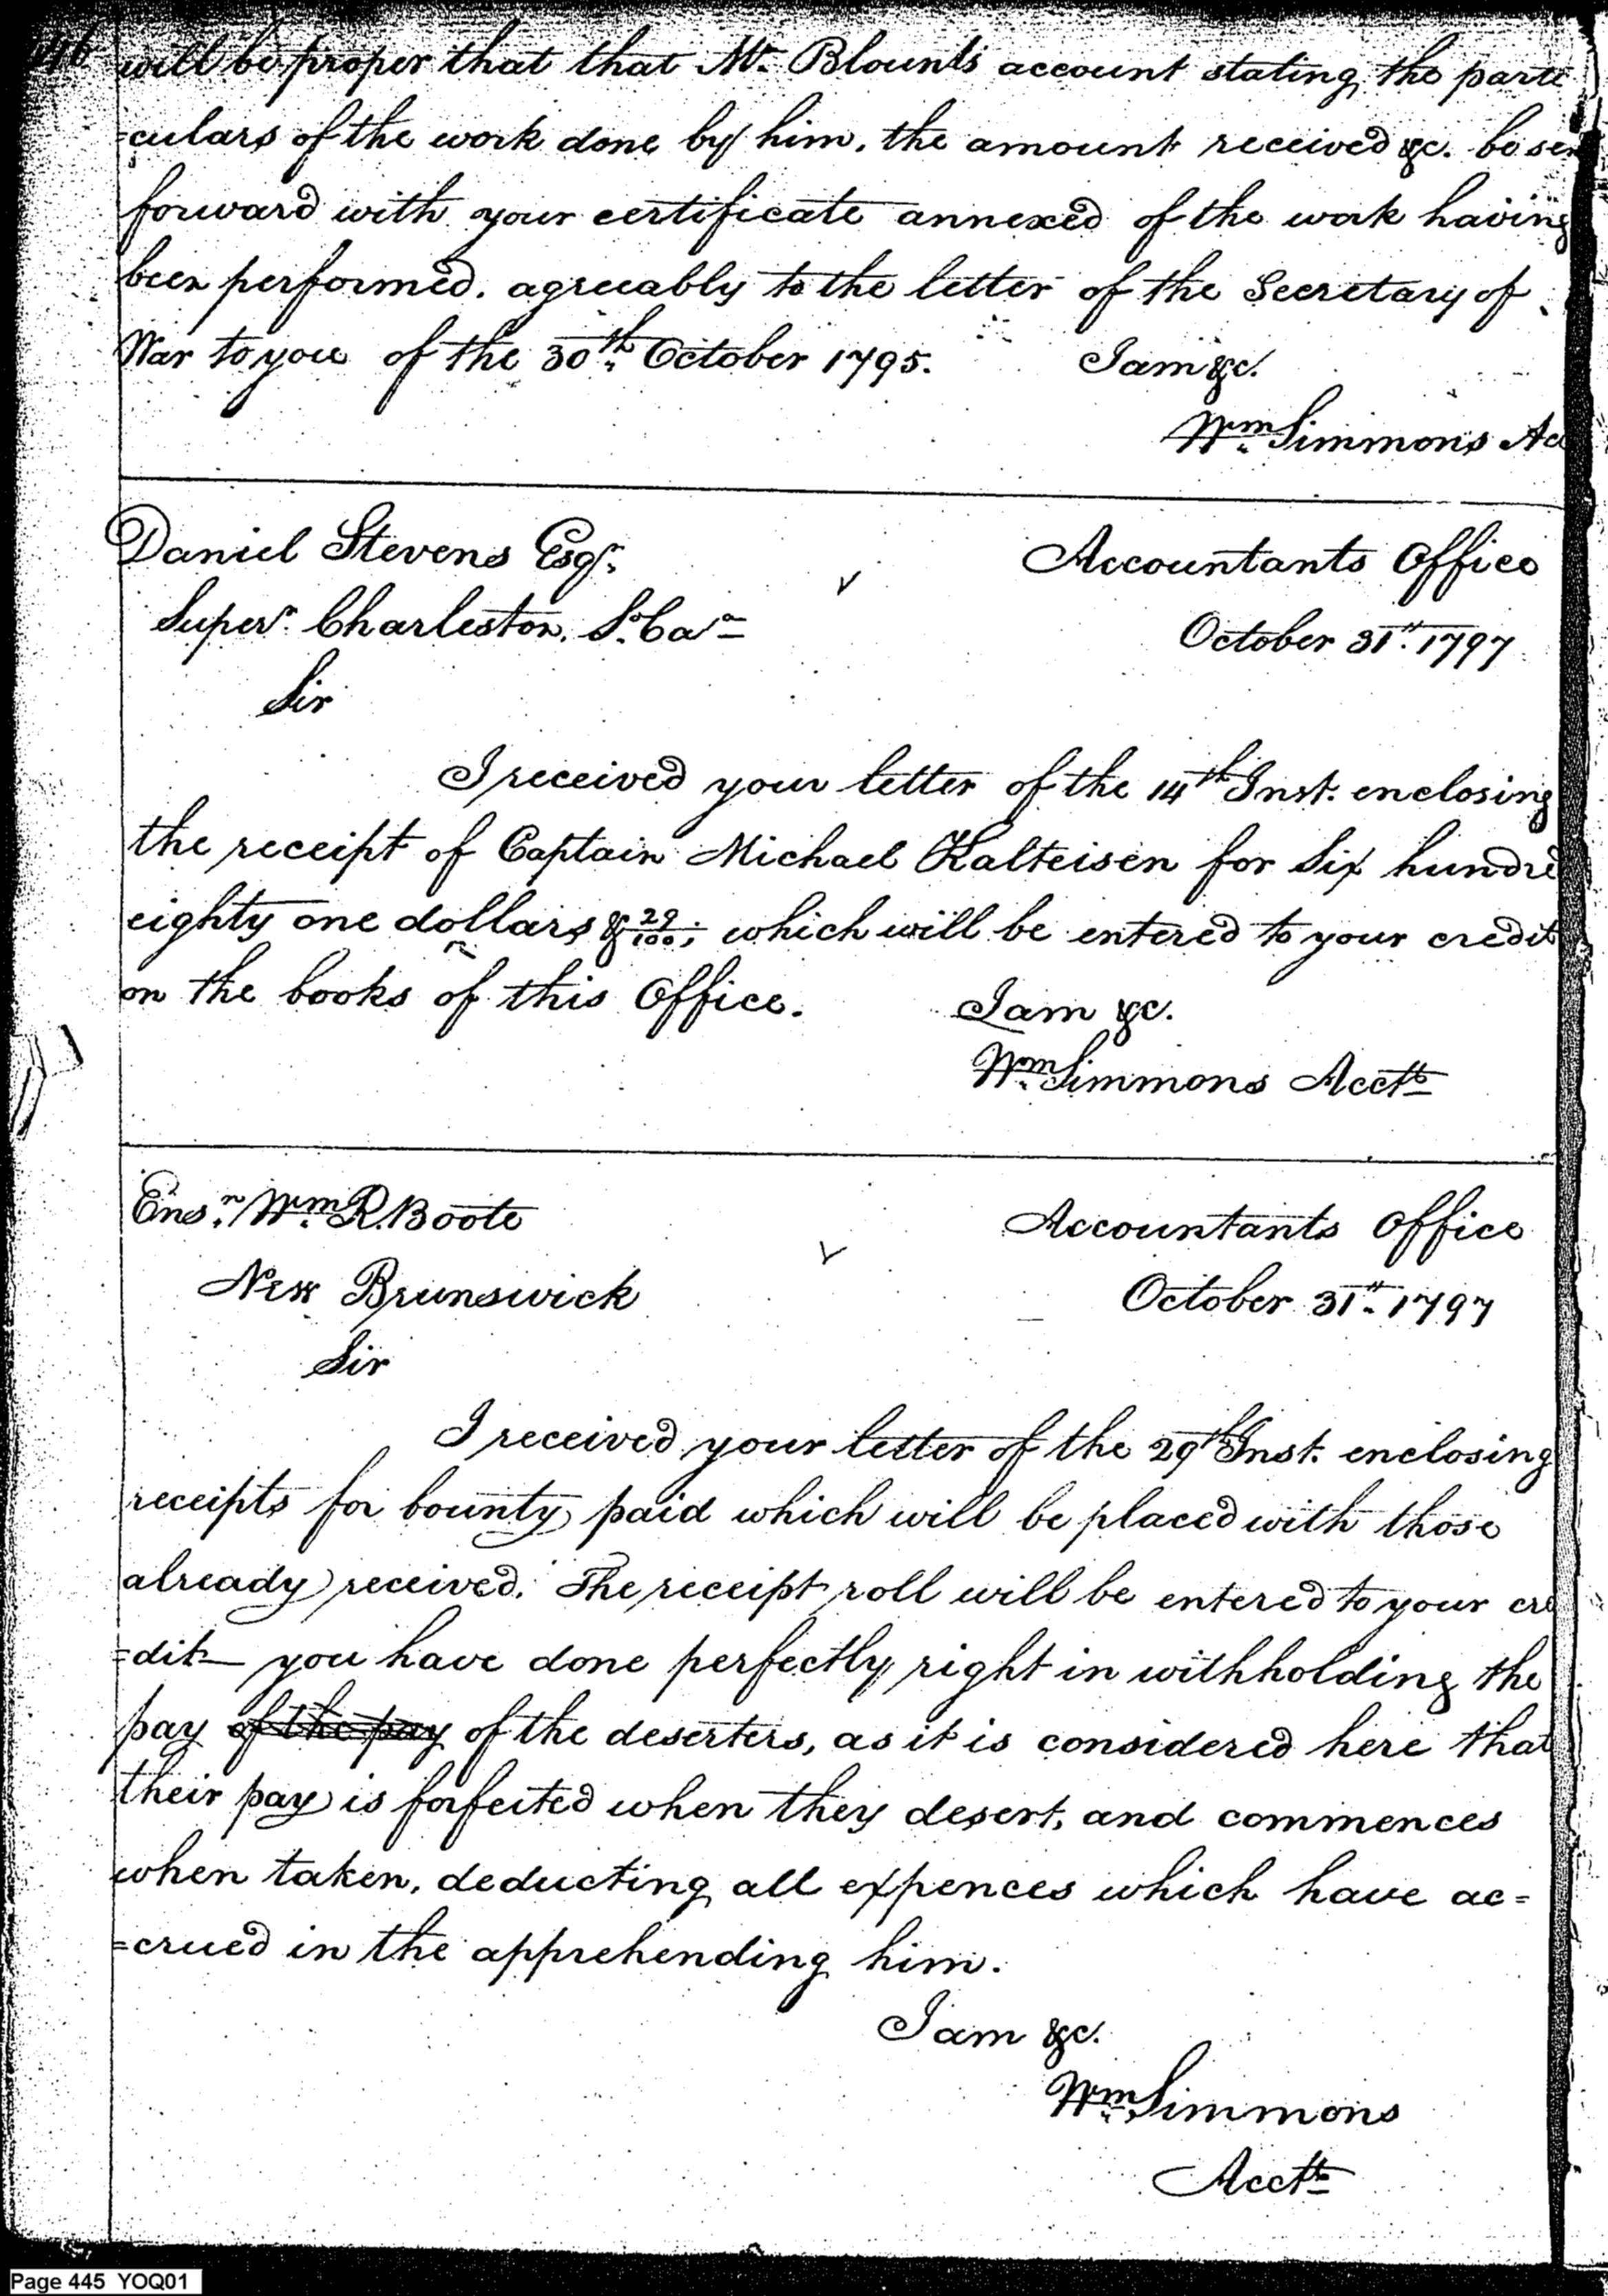 will be proper that that Mr. Blounts account stating the parti
=culars of the work done by him, the amount received &c. be sen
forward with your certificate annexed of the work having
been performed. agreeably to the letter of the Secretary of
War to you of the 30th October 1795. I am &c.
Wm Simmons Acc
Daniel Stevens Esqr. Accountants Office
Superr. Charleston, So. Cara October 31st. 1797
Sir
I received your letter of the 14th Inst. enclosing
the receipt of Captain Michael Kalteisen for Six hundred
eighty one dollars & 29/100; which will be entered to your credit
on the books of this Office. I am &c.
Wm Simmons Acctt
Ensn. Wm R. Boote Accountants Office
New Brunswick October 31st. 1797
Sir
I received your letter of the 29th Inst. enclosing
receipts for bounty paid which will be placed with those
already received. The receipt roll will be entered to your cre
=dit— you have done perfectly right in withholding the
pay of the pay of the deserters, as it is considered here that
their pay is forfeited when they desert, and commences
when taken, deducting all expences which have ac=
=crued in the apprehending him.
I am &c.
Wm Simmons
Acctt
Page 445 YOQ01